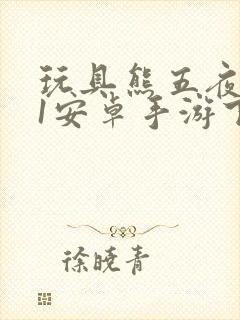 玩具熊五夜
1安卓手游下
徐晓青